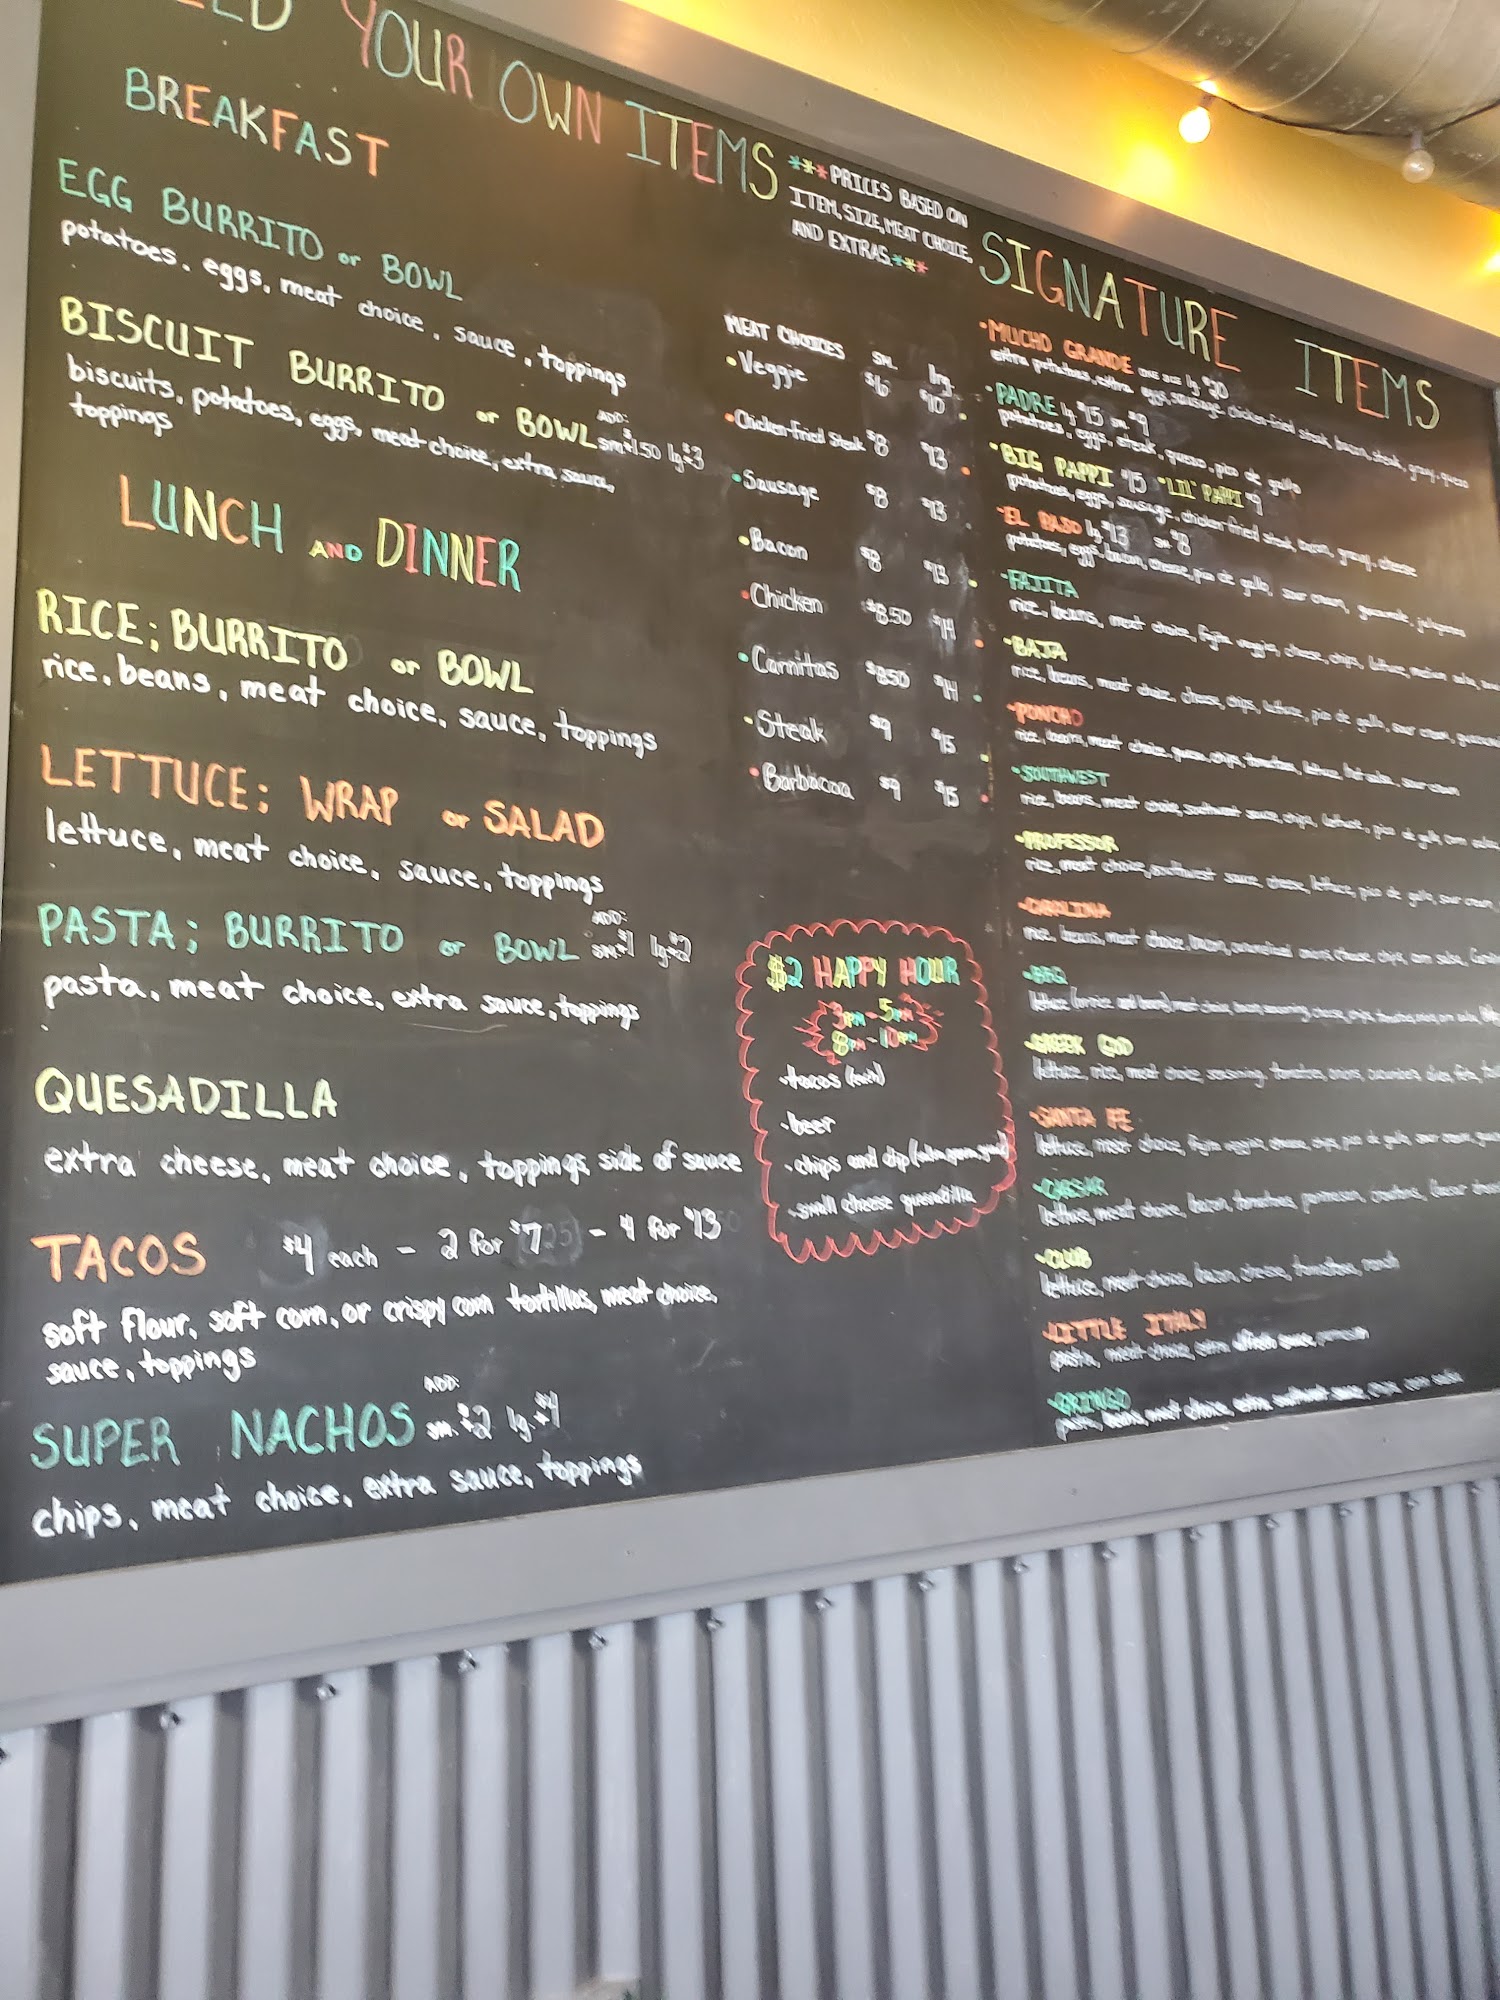 YOUR OWN ITEMS
BREAKFAST
EGG BURRITO or BOWL
potatoes, eggs, meat choice, sauce, toppings
BISCUIT BURRITO or BOWL ADD: sm+$1.50 lg+$3
biscuits, potatoes, eggs, meat choice, extra sauce,
toppings
LUNCH AND DINNER
RICE; BURRITO or BOWL
rice, beans, meat choice, sauce, toppings
LETTUCE: WRAP or SALAD
lettuce, meat choice, sauce, toppings
PASTA; BURRITO or BOWL ADD: sm+$1 lg+$2
pasta, meat choice, extra sauce, toppings
QUESADILLA
extra cheese, meat choice, toppings, side of sauce
TACOS $4 each - 2 for $7 - 4 for $13
soft flour, soft corn, or crispy corn tortillas, meat choice,
sauce, toppings
SUPER NACHOS ADD: sm.+$2 lg.+$4
chips, meat choice, extra sauce, toppings
***PRICES BASED ON
ITEM, SIZE, MEAT CHOICE,
AND EXTRAS.***
MEAT CHOICES sm. lrg.
•Veggie $6 $10
•Chicken-Fried Steak $8 $13
•Sausage $8 $13
•Bacon $8 $13
•Chicken $8.50 $14
•Carnitas $8.50 $14
•Steak $9 $15
•Barbacoa $9 $15
$2 HAPPY HOUR
3PM-5PM
8PM-10PM
-tacos (each)
-beer
-chips and dip
-small cheese quesadilla
SIGNATURE ITEMS
•MUCHO GRANDE lg $20
extra potatoes, extra eggs, sausage, chicken-fried steak, bacon, steak, gravy, queso
•PADRE lg $15 sm $9
potatoes, eggs, steak, queso, pico de gallo
•BIG PAPPI $15 "LIL" PAPPI $9
potatoes, eggs, sausage, chicken fried steak, bacon, gravy, cheese
•EL PASO lg $13 sm $8
potatoes, eggs, bacon, cheese, pico de gallo, sour cream, guacamole, jalapenos
•FAJITA
rice, beans, meat choice, fajita veggies, cheese, chips, lettuce, medium salsa,
•BAJA
rice, beans, meat choice, cheese, chips, lettuce, pico de gallo, sour cream,
•PONCHO
rice, beans, meat choice, queso, chips, tomatoes, lettuce, hot salsa, sour cream
•SOUTHWEST
rice, beans, meat choice, southwest sauce, chips, lettuce, pico de gallo, corn salsa,
•PROFESSOR
rice, meat choice, southwest sauce, cheese, lettuce, pico de gallo, sour cream,
rice, beans, meat choice, bacon, caramelized onions, cheese, chips, corn salsa,
•BBQ
•GREEK GOD
lettuce, rice, meat choice, seasoning, tomatoes, onions, cucumbers, olives, feta,
•SANTA FE
lettuce, meat choice, fajita veggies, cheese, chips, pico de gallo, sour cream,
•CAESAR
lettuce, meat choice, bacon, tomatoes, parmesan, croutons,
•CLUB
lettuce, meat choice, bacon, cheese, tomatoes, ranch
•LITTLE ITALY
pasta, meat choice, extra alfredo sauce, parmesan
•GRINGO
pasta, beans, meat choice, extra southwest sauce, corn salsa